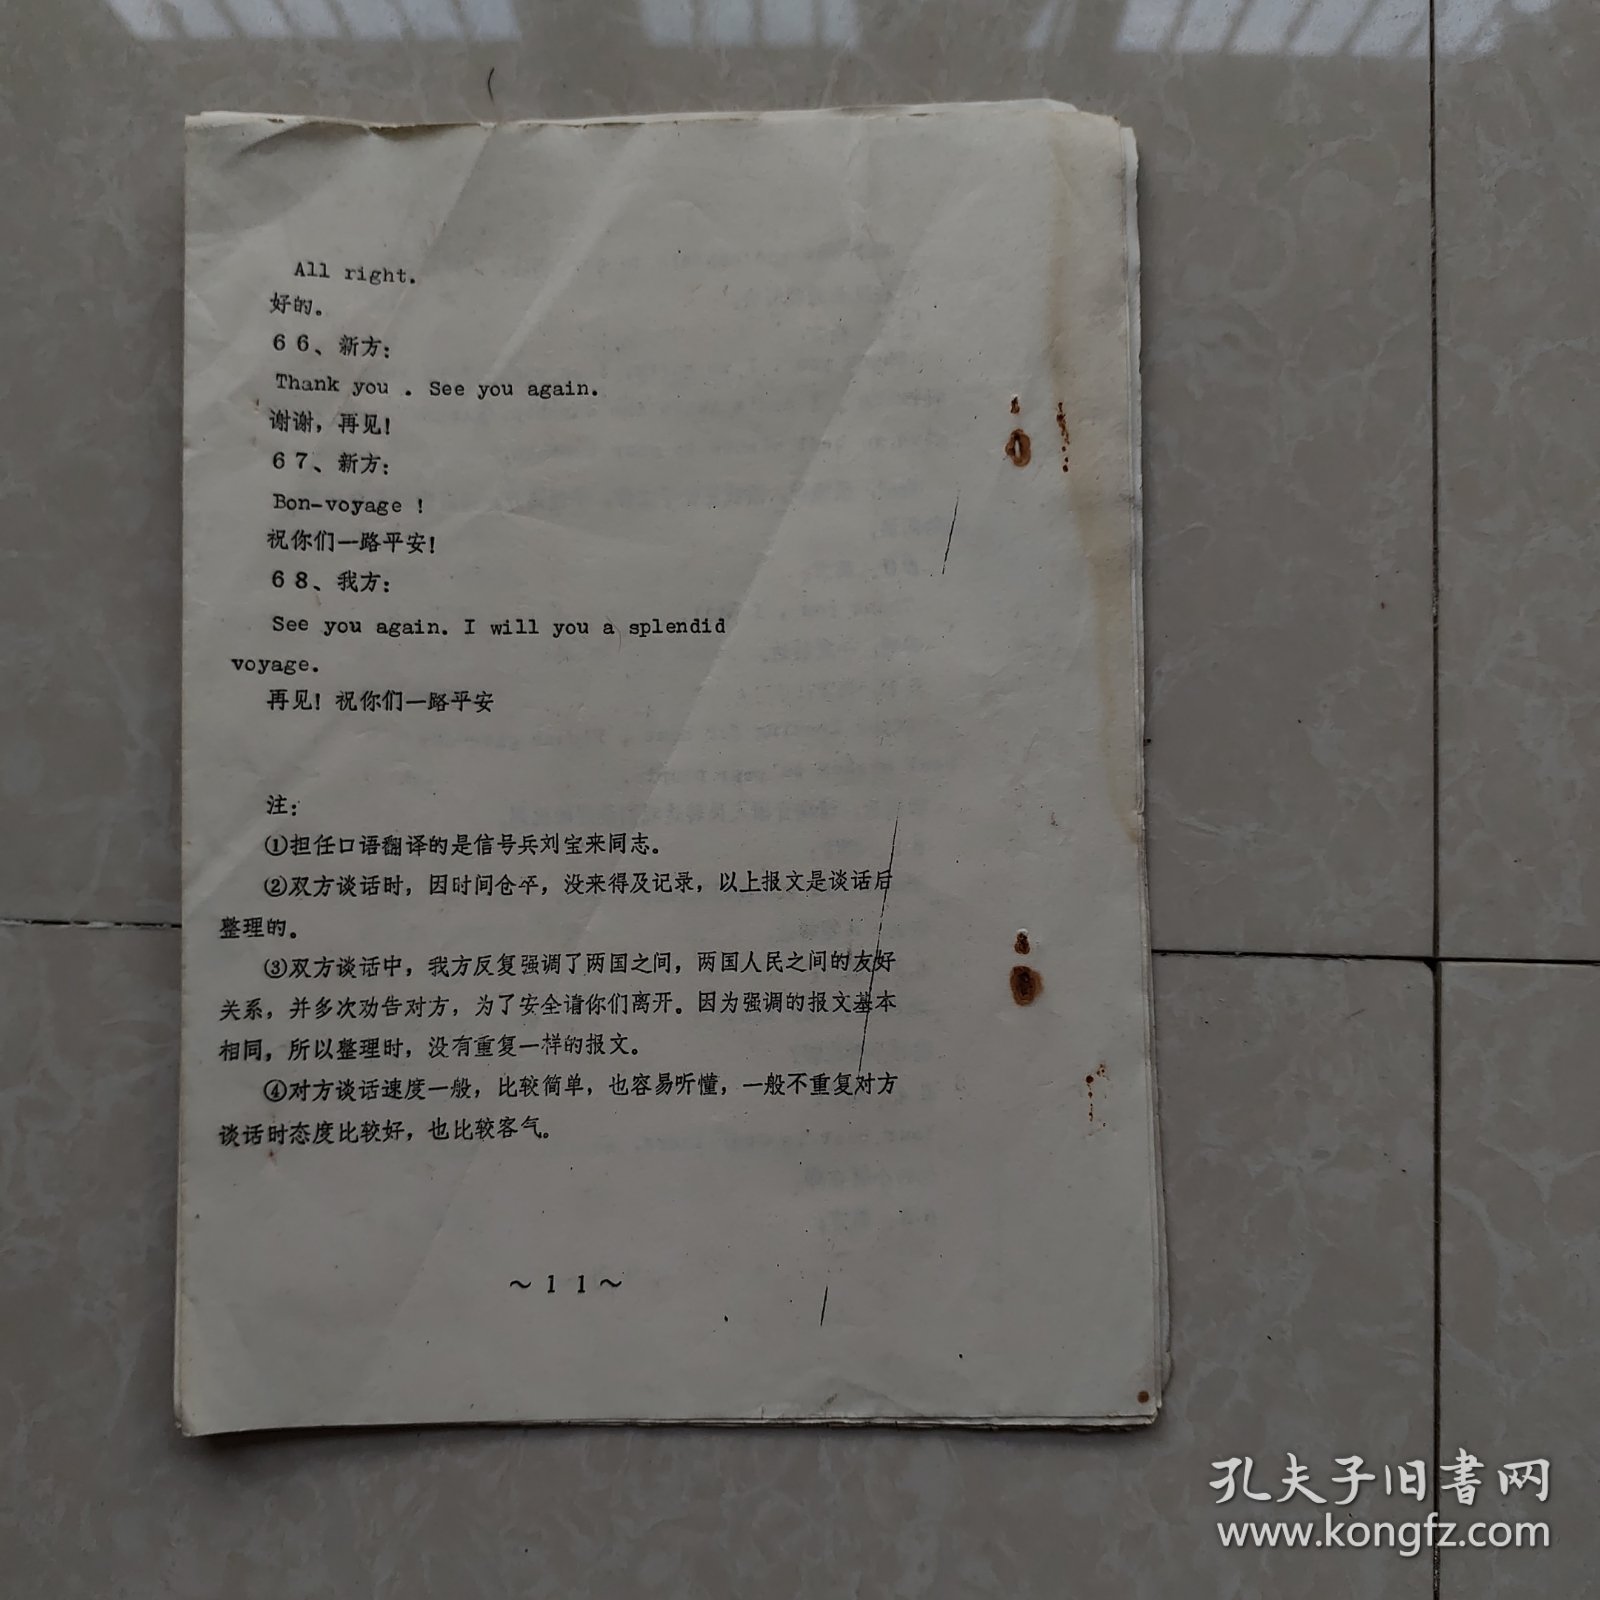 All right.
好的。
66、新方：
Thank you . See you again.
谢谢，再见！
67、新方：
Bon-voyage !
祝你们一路平安！
68、我方：
See you again. I will you a splendid
voyage.
再见！祝你们一路平安
注：
①担任口语翻译的是信号兵刘宝来同志。
②双方谈话时，因时间仓卒，没来得及记录，以上报文是谈话后
整理的。
③双方谈话中，我方反复强调了两国之间，两国人民之间的友好
关系，并多次劝告对方，为了安全请你们离开。因为强调的报文基本
相同，所以整理时，没有重复一样的报文。
④对方谈话速度一般，比较简单，也容易听懂，一般不重复对方
谈话时态度比较好，也比较客气。
～11～
孔夫子旧书网
www.kongfz.com